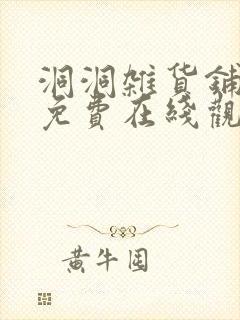 洞洞雜貨鋪
免費在綫觀
黃牛困